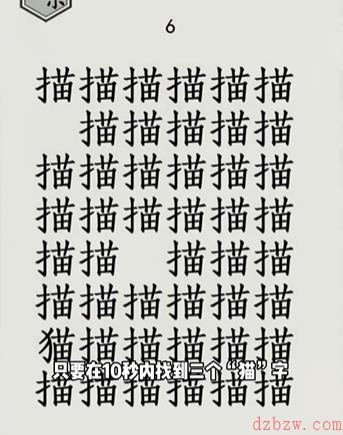 6
描描描描描描
描描描描描
描描描描描描
描描描描描描
描描 描描描
描描描描描描
猫描描描描描
只要在10秒内找到三个“猫”字
描描描描描描
dzbzw.com